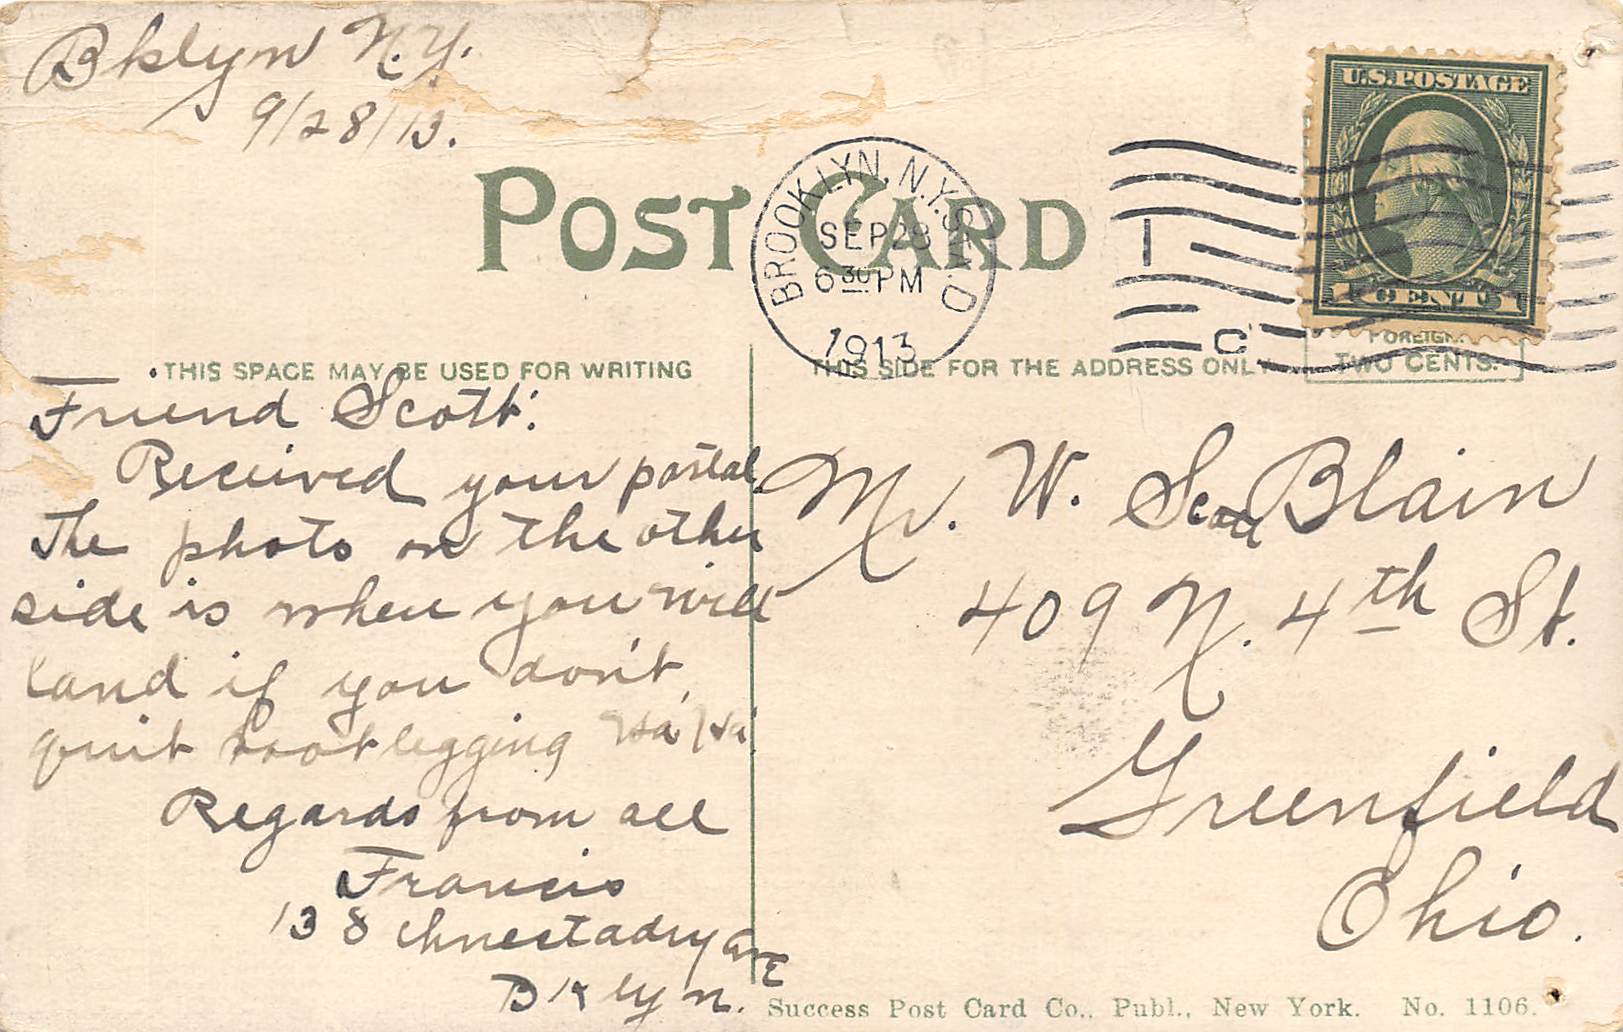 Bklyn N.Y.
9/28/13.
POST CARD
BROOKLYN, N.Y. STA. D
SEP 28
6 30 PM
1913
1
C
U.S. POSTAGE
1 CENT 1
FOREIGN
TWO CENTS.
THIS SPACE MAY BE USED FOR WRITING
THIS SIDE FOR THE ADDRESS ONLY
Friend Scott:
Received your postal.
The photo on the other
side is when you will
land if you don't,
quit bootlegging Ha Ha
Regards from all
Francis
138 Chnectadry ave
Bklyn.
Mr. W. Scott Blain
409 N. 4th St.
Greenfield
Ohio.
Success Post Card Co., Publ., New York. No. 1106.